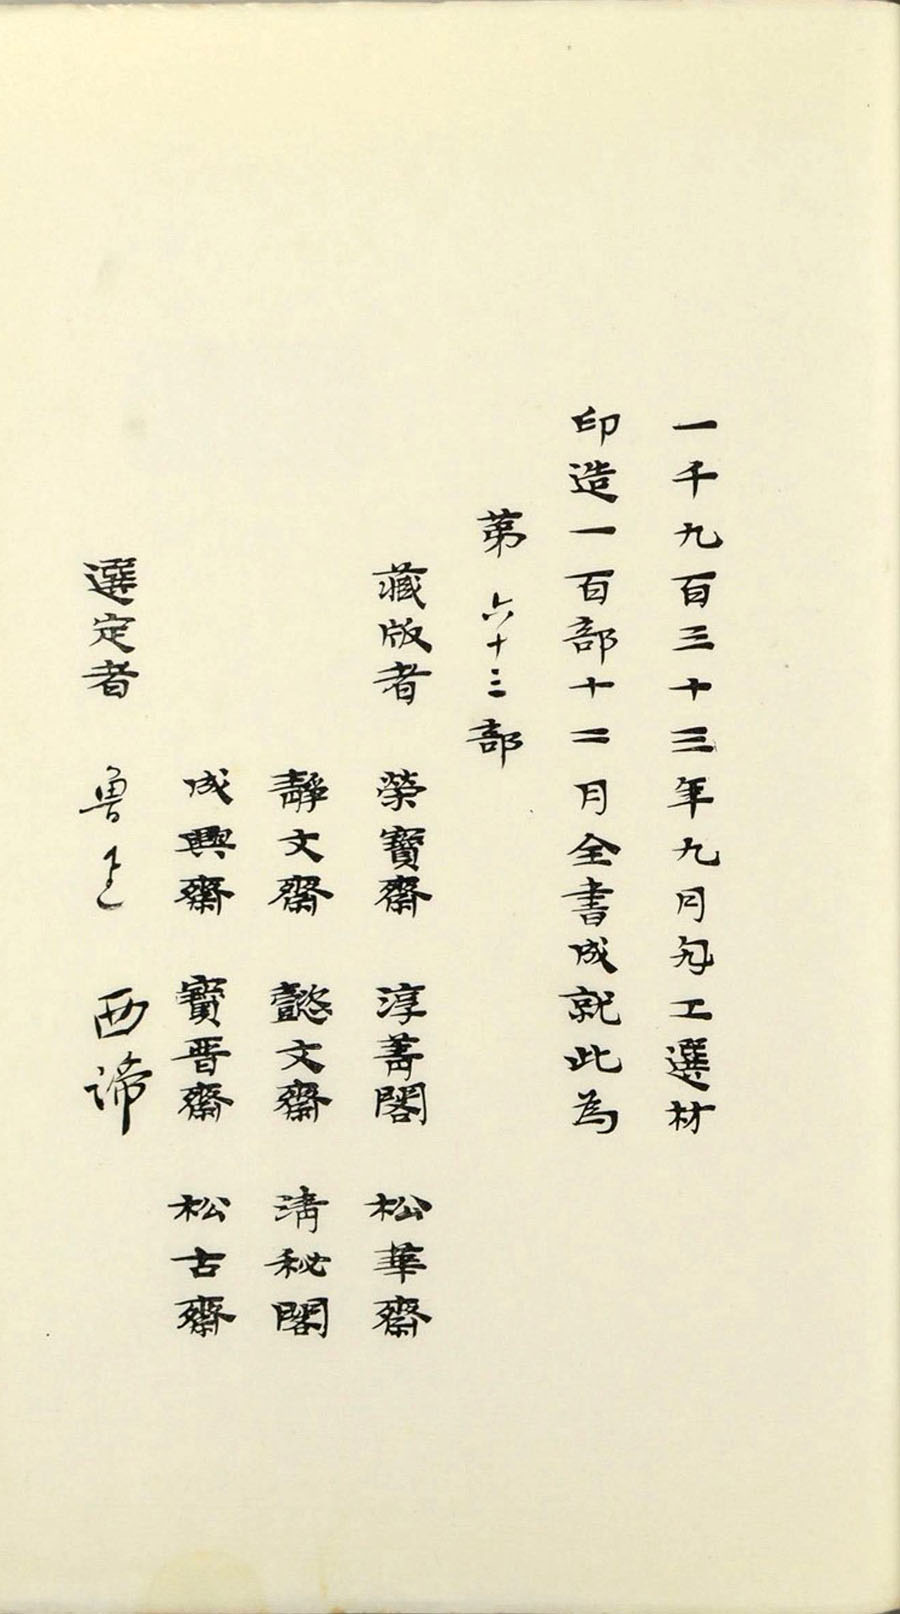 一千九百三十三年九月勼工選材
印造一百部十二月全書成就此為
第六十三部
藏版者 榮寶齋 淳菁閣 松華齋
靜文齋 懿文齋 淸秘閣
成興齋 寶晋齋 松古齋
選定者 魯迅 西諦